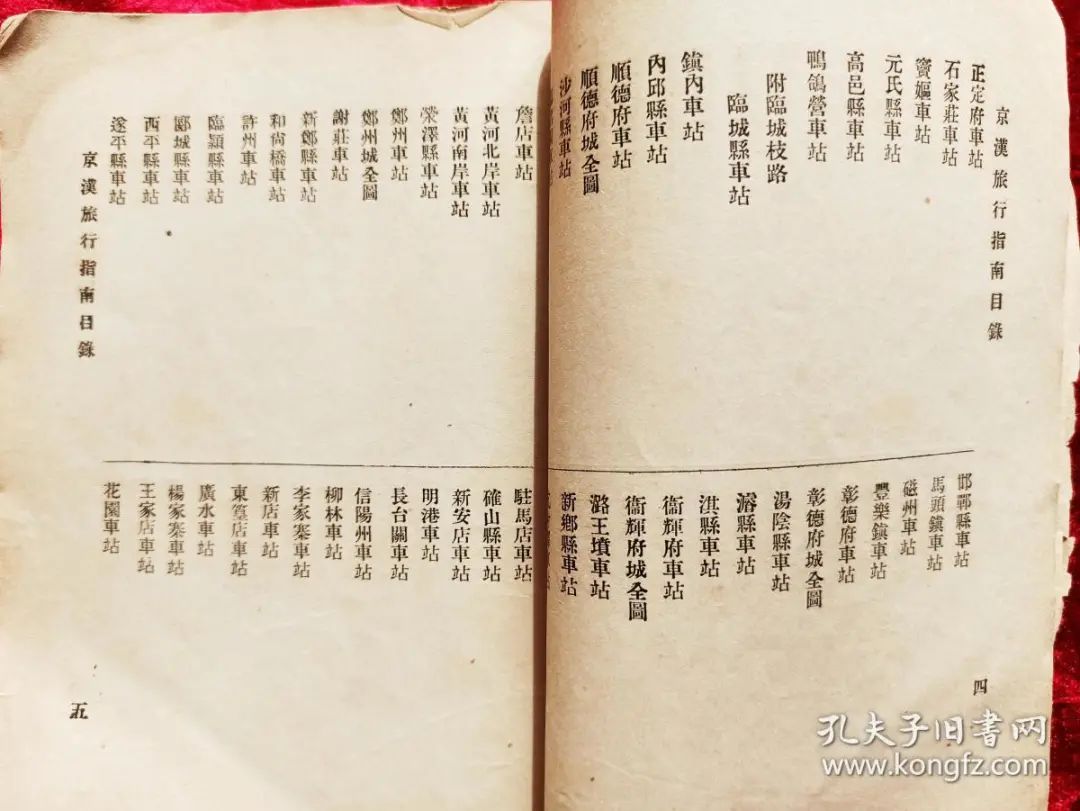 京漢旅行指南目錄
正定府車站
石家莊車站
竇嫗車站
元氏縣車站
高邑縣車站
鴨鴿營車站
附臨城枝路
臨城縣車站
鎮內車站
內邱縣車站
順德府車站
順德府城全圖
沙河縣車站
邯鄲縣車站
馬頭鎮車站
磁州車站
豐樂鎮車站
彰德府車站
彰德府城全圖
湯陰縣車站
濬縣車站
淇縣車站
衞輝府車站
衞輝府城全圖
潞王墳車站
新鄉縣車站
四
詹店車站
黃河北岸車站
黃河南岸車站
滎澤縣車站
鄭州車站
鄭州城全圖
謝莊車站
新鄭縣車站
和尚橋車站
許州車站
臨潁縣車站
郾城縣車站
西平縣車站
遂平縣車站
駐馬店車站
確山縣車站
新安店車站
明港車站
長台關車站
信陽州車站
柳林車站
李家寨車站
新店車站
東篁店車站
廣水車站
楊家寨車站
王家店車站
花園車站
京漢旅行指南目錄
五
孔夫子旧书网
www.kongfz.com